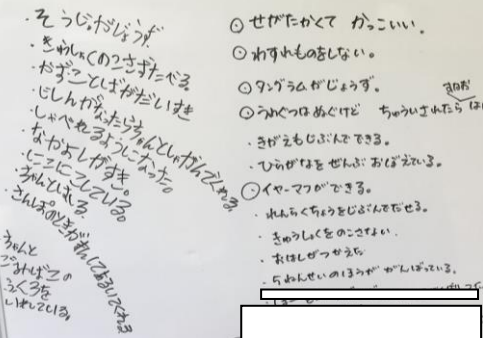 ・そうじがじょうず
・きゅうしょくのこさずたべる。
・かずことばがだいすき
・じしんがなったらちゃんとしゃがんでくれる
・しゃべれるようになった。
・なかよしがすき。
・にこにこしている。
・ちゃんとはしれる
・さんぽのときがまんしてあるいてくれる
ちゃんと
ごみばこの
ふくろを
いれている。
・せがたかくて かっこいい。
・わすれものをしない。
・タングラムがじょうず。
・うわぐつはぬぐけど ちゅういされたら
・きがえもじぶんでできる。
・ひらがなをぜんぶおぼえている。
・イヤーマフができる。
・れんらくちょうをじぶんでだせる。
・きゅうしょくをのこさない
・おはしがつかえた
・5ねんせいのほうががんばっている。